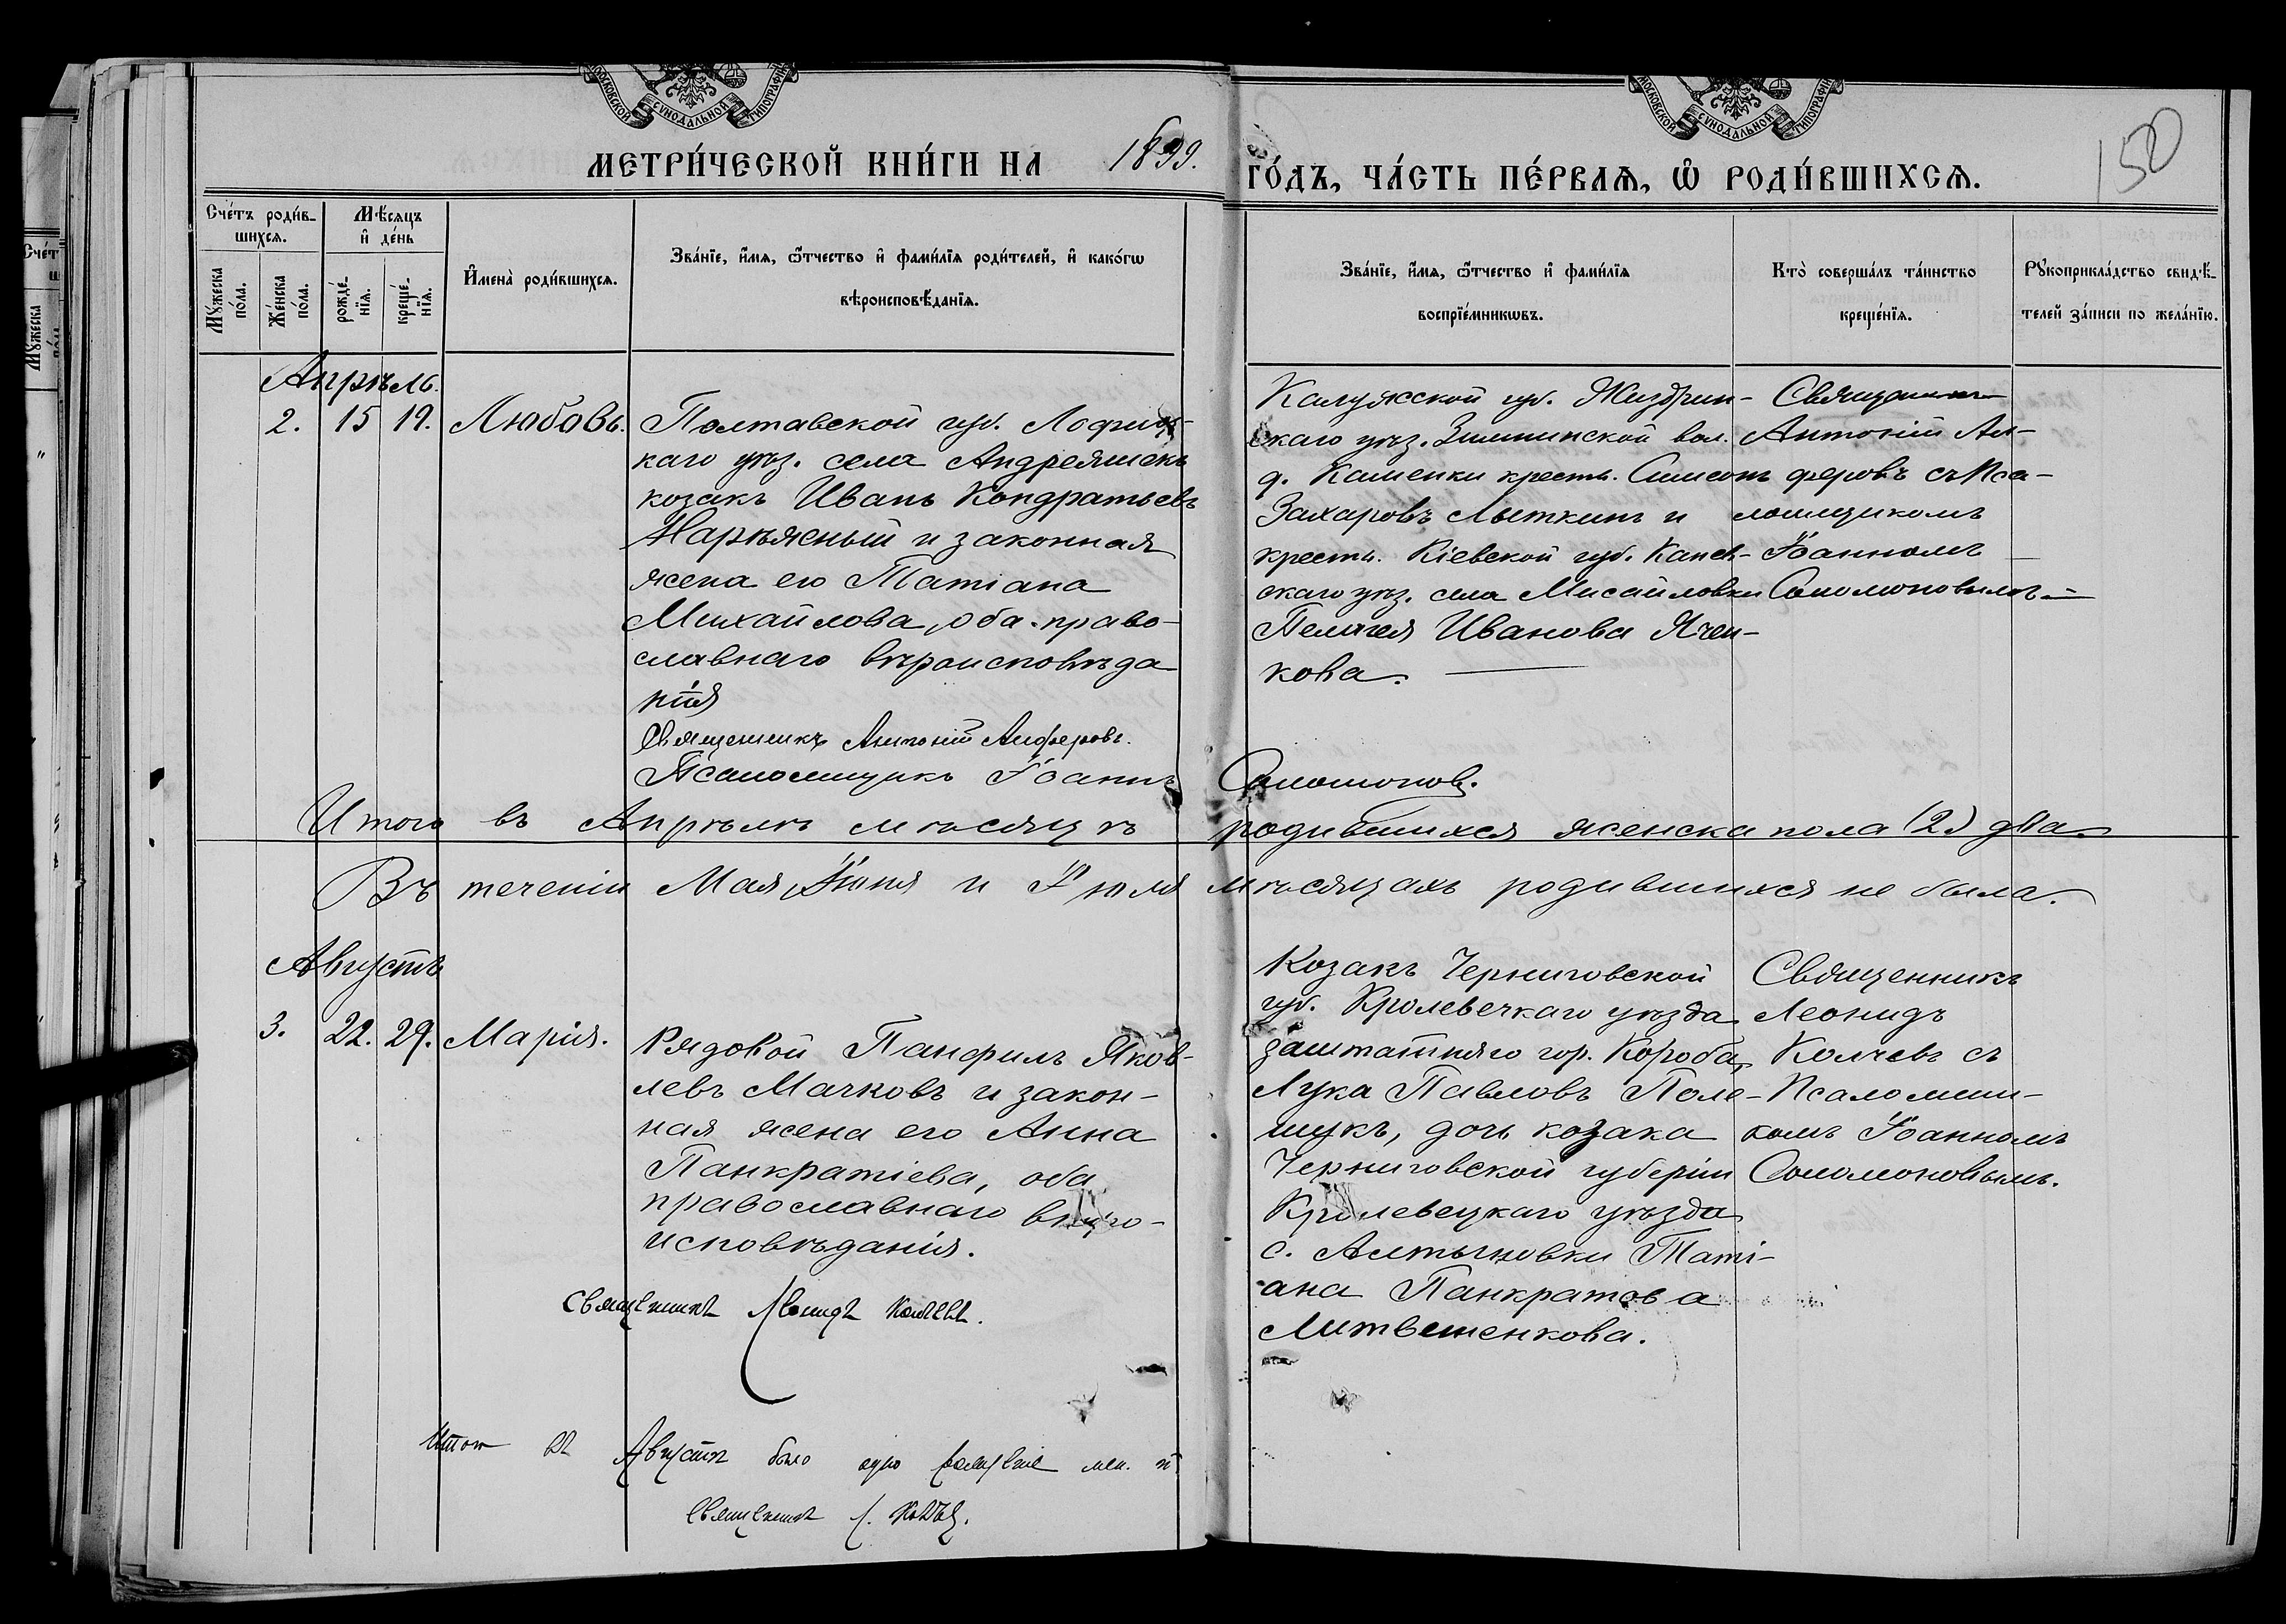 МОСКОВСКОЙ СУНОДАЛЬНОЙ ТИПОГРАФІИ
МОСКОВСКОЙ СУНОДАЛЬНОЙ ТИПОГРАФІИ
МЕТРИ́ЧЕСКОЙ КНИ́ГИ НА 1899. ГО́ДЪ, ЧА́СТЬ ПЕ́РВАѦ, Ѡ҆ РОДИ́ВШИХСѦ.
150
Сче́тъ роди́в-
шихсѧ.
Мѣ́сѧцъ
и҆ де́нь
Мꙋ́жеска
по́ла.
Же́нска
по́ла.
рожде́-
нїѧ.
креще́-
нїѧ.
И҆мена̀ роди́вшихсѧ.
Зва́нїе, и҆́мѧ, ѻ҆́тчество и҆ фами́лїѧ роди́телей, и҆ како́гѡ
вѣроисповѣ́данїѧ.
Зва́нїе, и҆́мѧ, ѻ҆́тчество и҆ фами́лїѧ
воспрїе́мникѡвъ.
Кто̀ соверша́лъ та́инство
креще́нїѧ.
Рꙋкоприкла́дство свидѣ́-
телей за́писи по жела́нїю.
Апрѣль.
2. 15 19. Любовь.
Полтавской губ. Лофиц-
каго уѣз. села Андреяшекъ
козакъ Иванъ Кондратьевъ
Нарѣжный и законная
жена его Татіана
Михайлова, оба право-
славнаго вѣроисповѣда
нія
Священникъ Антоній Алферовъ.
Псаломщикъ Іоаннъ Соломоновъ.
Калужской губ. Жиздрин-
скаго уѣз. Зимницской вол.
д. Каменки крестьн. Симеонъ
Захаровъ Лыткинъ и
крестн. Кіевской губ. Канев-
скаго уѣз. села Мисайловки
Пелагея Иванова Ячен-
кова.
Священникъ
Антоній Ал-
феровъ съ Пса-
ломщикомъ
Іоанномъ
Соломоновымъ
Итого въ Апрѣлѣ мѣсяцѣ родившихся женска пола (2) два.
Въ теченіи Мая, Іюня и Іюля мѣсяцахъ родившихся не было.
Августъ
3. 22. 29. Марія.
Рядовой Панфилъ Яков-
левъ Мачковъ и закон-
ная жена его Анна
Панкратіева, оба
православнаго вѣро-
исповѣданія.
Священникъ Леонидъ Колчевъ.
Козакъ Черниговской
губ. Кролевечкаго уѣзда
заштатнаго гор. Короба,
Лука Павловъ Поле-
щукъ, дочь козака
Черниговской губеріи
Кролевецкаго уѣзда
с. Алтыновки Таті-
ана Панкратова
Литвененкова.
Священникъ
Леонидъ
Колчевъ съ
Псаломщи-
комъ Іоанномъ
Соломоновымъ.
Итого въ Августѣ было одно
Священникъ Л.